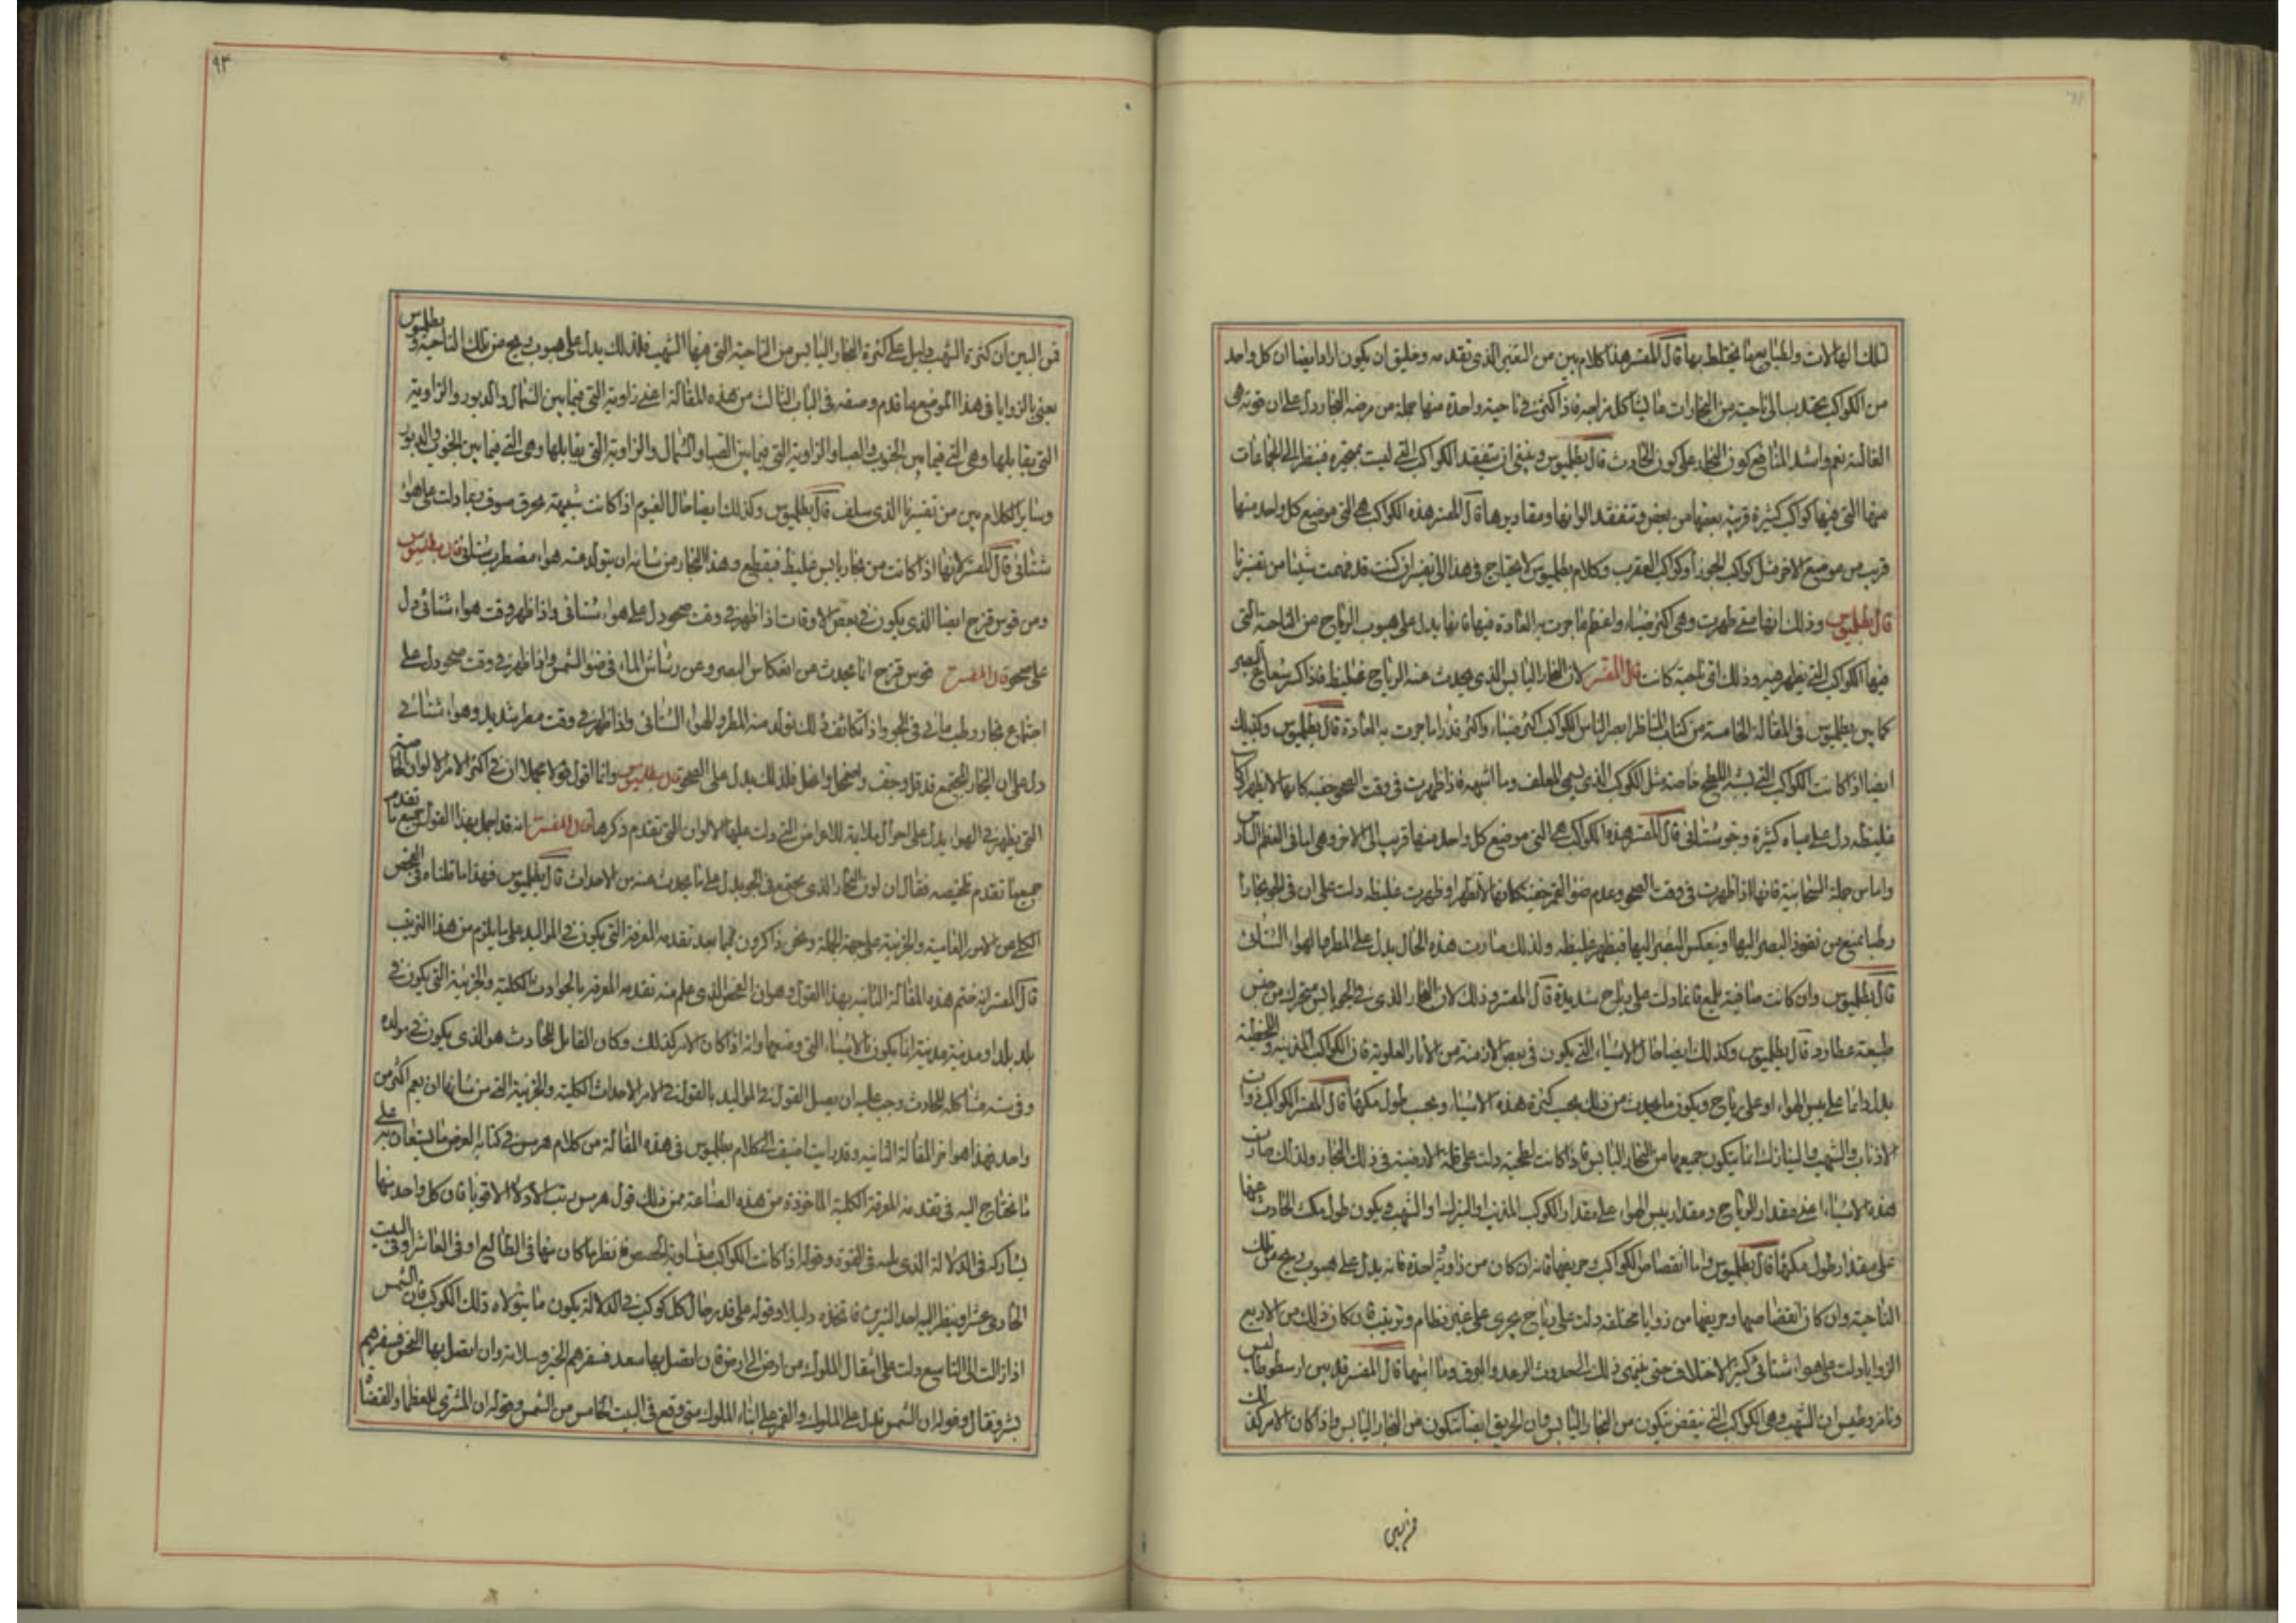 لتلك الهالات ولطبايعها يختلط بها قال المفسر هذا كلام بين من التفسير الذى تقدمه وخليق ان يكون اراد ايضا ان كل واحد
من الكواكب يجتذب الى ناحيته من البخارات ما يشاكل مزاجه فاذا كثر فى ناحية واحدة منها جملة من مرضه البخار دل على ان قوته هى
الغالبة نعم واشد المنافع كون البخار على كون الحادث قال بطلميوس وينبغى ان نتفقد الكواكب التى ليست بمتحيرة فينظر الى الجماعات
منها التى فيها كواكب كثيرة قريبة بعضها من بعض وتتفقد الوانها ومقاديرها قال المفسر هذه الكواكب هى التى موضع كل واحد منها
قريب من موضع الاخر مثل كواكب الجوزا وكواكب العقرب وكلام بطلميوس لا يحتاج فى هذا الى تفسير ان كنت قد فهمت شيئا من تفسيرنا
قال بطلميوس وذلك انها متى ظهرت وهى اكثر ضياء واعظم ما جرت به العادة فيها فانها يدل على هبوب الرياح من الناحية التى
فيها الكواكب التى يظهر فيه وذلك اى ناحية كانت قال المفسر لان البخار اليابس الذى يحدث عنه الرياح غليظ فاذا كسر شعاع البصر
كما بين بطلميوس فى المقالة الخامسة من كتاب المناظر ابصر الناس الكواكب اكثر ضياء واكثر قدرا ما جرت به العادة قال بطلميوس وكذلك
ايضا اذا كانت الكواكب التى بشبه اللطخ خاصة مثل الكوكب الذى يسمى المعلف وما اشبهه فاذا ظهرت فى وقت الصحو خفية كانها لا تظهر او كانت
غليظة دل على مياه كثيرة وجو شتائى قال المفسر هذه الكواكب هى التى موضع كل واحد منها قريب الى الاخر وهى اما فى العظم السادس
واما من جملة السحابية فانها اذا ظهرت فى وقت الصحو وعدم ضوء القمر خفية كانها لا تظهر او ظهرت غليظة دلت على ان فى الجو بخارا
رطبا يمنع من نفوذ البصر اليها او ينعكس البصر اليها فيظهر غليظة ولذلك صارت هذه الحال يدل على المطر والهواء الشتائى
قال بطلميوس وان كانت صافية تلمع فانها دلت على رياح شديدة قال المفسر وذلك لان البخار الذى فى الجو يابس متحرك من جنس
طبيعة عطارد قال بطلميوس وكذلك ايضا حال الاشياء التى يكون فى بعض الازمنة من الاثار العلوية فان الكواكب المذنبة واللحظية
يدل دائما على يبس الهواء او على رياح ويكون ما يحدث من ذلك بحسب كثرة هذه الاشياء وبحسب طول مكثها قال المفسر الكواكب ذوات
الاذناب والشهب والنيازك انما يتكون جميعها من البخار اليابس فاذا كانت لطخية دلت على قلة الارضية فى ذلك البخار ولذلك صارت
هذه الاشياء اعنى مقدار الرياح ومقدار يبس الهواء على مقدار الكواكب المذنبة او النيازك او الشهب ويكون طول مكث الحادث عنها
على مقدار طول مكثها قال بطلميوس واما انقضاض الكواكب وجريها فانه ان كان من زاوية واحدة فانه يدل على هبوب ريح من تلك
الناحية وان كان انقضاضها وجريها من زوايا مختلفة دلت على رياح يجرى على غير نظام وترتيب فان كان ذلك من الاربع
الزوايا دلت على هواء شتائى كثير الاختلاف حتى ينتهى ذلك الى حدوث الرعد والبروق وما اشبهها قال المفسر قد بين ارسطوطاليس
وثامسطيوس ان الشهب وهى الكواكب التى تنقض يتكون من البخار اليابس وان الحريق ايضا يتكون من البخار اليابس واذا كان الامر كذلك
٩٣
فمن البين ان كثرة الشهب دليل على كثرة البخار اليابس من الناحية التى فيها الشهب فلذلك يدل على هبوب ريح من تلك الناحية وبطلميوس
يعنى بالزوايا فى هذا الموضع ما قدم وصفه فى الباب الثالث من هذه المقالة اعنى زاوية التى فيما بين الشمال والدبور والزاوية
التى يقابلها وهى التى فيما بين الجنوب والصبا والزاوية التى فيما بين الصبا والشمال والزاوية التى يقابلها وهى التى فيما بين الجنوب والدبور
وساير الكلام بين من تفسيرنا الذى سلف قال بطلميوس وكذلك ايضا حال الغيوم اذا كانت شبيهة بجرة صوف ربما دلت على هواء
شتائى قال المفسر لانها اذا كانت من بخار يابس غليظ فيقطع وهذا البخار من شانه ان يتولد منه هواء مضطرب شتائى قال بطلميوس
ومن قوس قزح ايضا الذى يكون فى بعض الاوقات اذا ظهر فى وقت صحو دل على هواء شتائى واذا ظهر وقت هواء شتائى دل
على صحو قال المفسر قوس قزح انما يحدث من انعكاس البصر وعن رشاش الماء فى ضوء الشمس واذا ظهر فى وقت صحو دل على
اجتماع بخار رطب مائى فى الجو واذا تكاثف ذلك تولد منه المطر والهواء الشتائى واذا ظهر فى وقت مطر شديد وهواء شتائى
دل على ان البخار المجتمع قد قل وجف واضمحل وانحل فلذلك يدل على الصحو قال بطلميوس وانما اقول قولا مجملا ان فى اكثر الامر الالوان الخاصية
التى يظهر فى الهواء يدل على احوال ملايمة للاعراض التى دلت عليها الالوان التى تقدم ذكرها قال المفسر انه قد اجمل بهذا القول جميع ما تقدم
جميع ما تقدم تلخيصه فقال ان لون البخار الذى يجتمع فى الجو يدل على ما يحدث عنه من الاحداث قال بطلميوس فهذا ما قلناه فى الفحص
الكلى عن الامور العامية والجزئية على جهة الجملة ونحن ذاكرون فيما بعد تقدمة المعرفة التى يكون فى المواليد على ما يلزم من هذا الترتيب
قال المفسر انه ختم هذه المقالة الثانية بهذا القول وهو ان الفحص الذى يعلم منه تقدمة المعرفة بالحوادث الكلية والجزئية التى يكون فى
بلد بلد او مدينة مدينة انما يكون بالاشياء التى وضعها وانه اذا كان الامر كذلك وكان القابل للحادث هو الذى يكون فى مولده
وفى سنه مشاكلة للحادث وجب عليه ان يصل القول فى المواليد بالقول فى الامر الاحداث الكلية والجزئية التى من شانها ان يعم اكثر من
واحد فهذا هو اخر المقالة الثانية وقد رايت اضيف الى كلام بطلميوس فى هذه المقالة من كلام هرمس فى كتابه العرض ما يستعان به على
ما يحتاج اليه فى تقدمة المعرفة الكلية الماخوذة من هذه الصناعة فمن ذلك قول هرمس رتب الادلاء الاقويا فان كل واحد منها
يشاركه فى الدلالة الذى يليه فى القوة وقوله اذا كانت الكواكب متساوية الحصص فانظر ما كان منها فى الطالع او فى العاشر او فى البيت
الحادى عشر او ينظر اليه احد النيرين فاتخذه دليلا وقوله على قدر حال كل كوكب فى الدلالة يكون ما يتولاه ذلك الكوكب فان الشمس
اذا زالت الى التاسع دلت على انتقال الملوك من ارض الى ارض فان اتصل بها سعد فسفرهم الخير وسلامة وان اتصل بها النحس فسفرهم
بشر وقتال وقوله ان الشمس تدل على الملوك والقمر على ابناء الملوك متى وقع فى البيت الخامس من الشمس وقوله ان المشترى للعظماء والقضاة